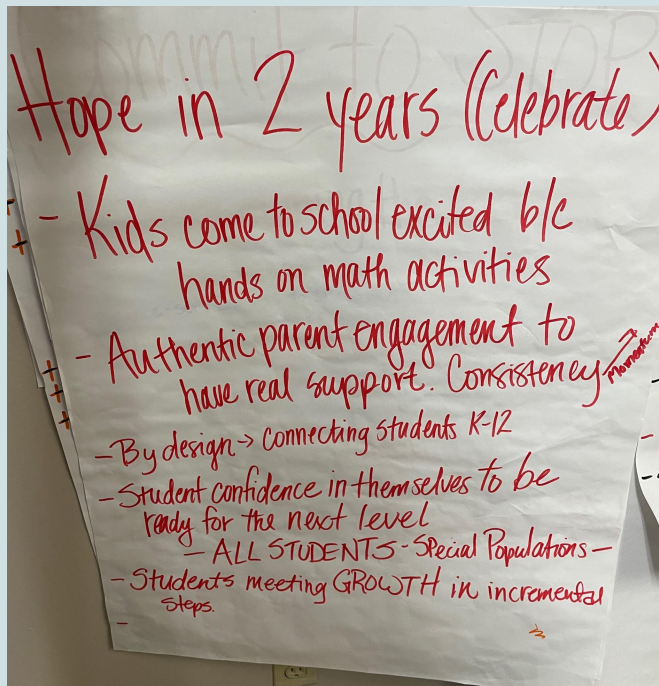 Commit to STOP
Hope in 2 years (Celebrate)
- Kids come to school excited b/c
hands on math activities
- Authentic parent engagement to
have real support. Consistency
Momentum
- By design → connecting students K-12
- Student confidence in themselves to be
ready for the next level
- ALL STUDENTS - Special Populations -
- Students meeting GROWTH in incremental
Steps.
-